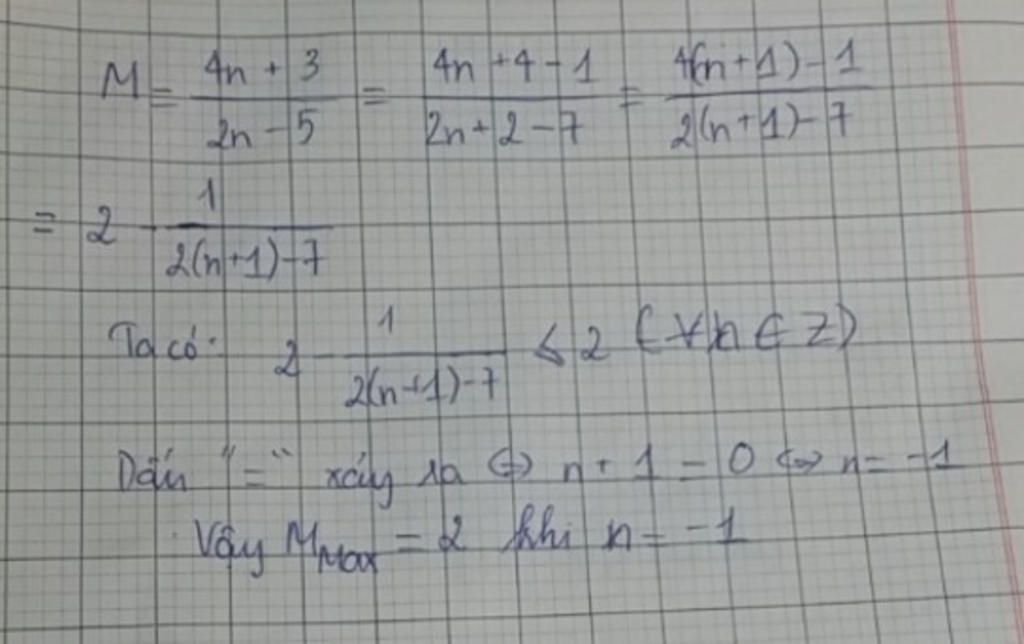 M = \frac{4n + 3}{2n - 5} = \frac{4n + 4 - 1}{2n + 2 - 7} = \frac{4(n + 1) - 1}{2(n + 1) - 7}
= 2 - \frac{1}{2(n + 1) - 7}
Ta có: 2 - \frac{1}{2(n + 1) - 7} ≤ 2 (∀ n ∈ Z)
Dấu "=" xảy ra ⇔ n + 1 = 0 ⇔ n = -1
Vậy M_{Max} = 2 khi n = -1